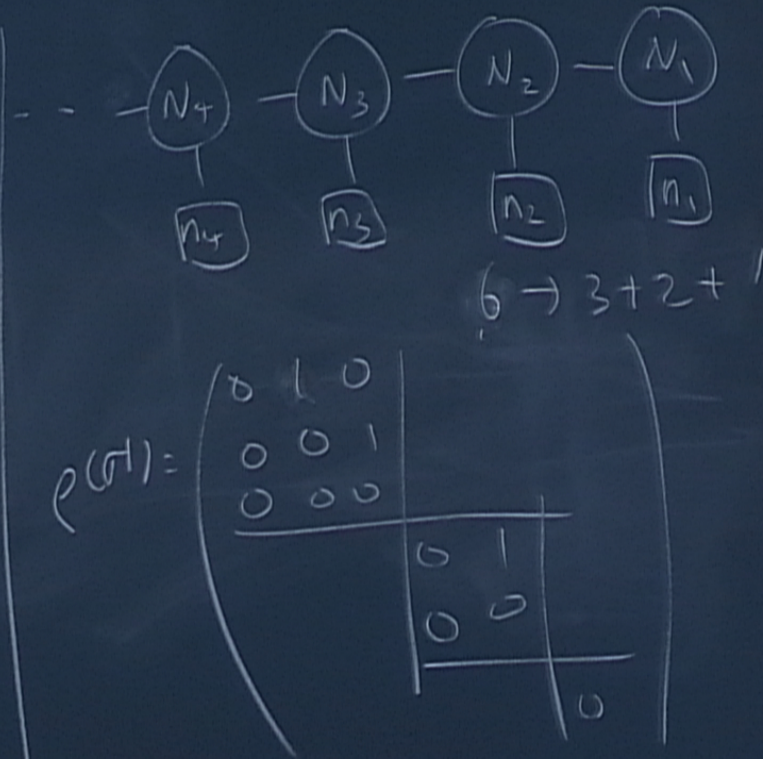 -- - N₄ - N₃ - N₂ - N₁
n₄ n₃ n₂ n₁
6 → 3+2+1
ρ(σ⁺)=
0 1 0
0 0 1
0 0 0
0 1
0 0
0